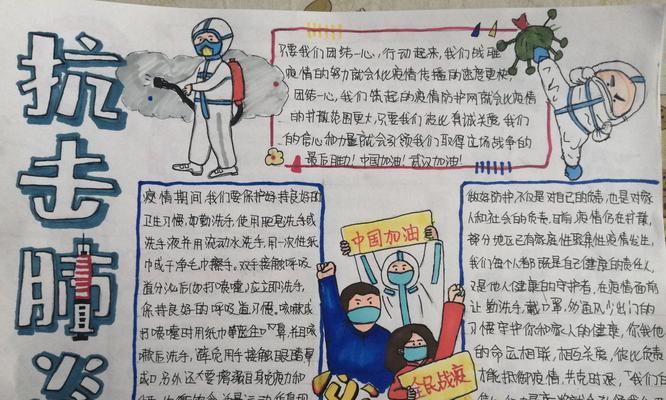 抗击肺炎
只要我们团结一心，行动起来，我们战胜
疫情的努力就会比疫情传播的速度更快
团结一心，我们筑起的疫情防护网就会比疫情
的扩散范围更大，只要我们彼此真诚关爱，我们
的信心和力量就会引领我们取得这场战争的
最后胜利！中国加油！武汉加油！
疫情期间，我们要保护好持良好的
卫生习惯，如勤洗手，使用肥皂洗手或
洗手液并用流动水洗手，用一次性纸
巾或干净毛巾擦手。双手接触呼吸
道分泌后（如打喷嚏）立即洗手，
保持良好的呼吸道习惯。咳嗽或
打喷嚏时用纸巾 口鼻，并咳
嗽后洗手，避免用手接触眼睛鼻
或口，另外还要 自身免疫力和
中国加油
全民战疫
做好防护，不仅是对自己的负责，也是对家
人和社会的负责，目前，疫情仍在扩散，
部分地区已有家庭性聚集性疫情发生，
我们每个人都既是自己健康的责任人，
又是他人健康的守护者，在疫情面前
让勤洗手，戴口罩，
习惯守护你和家人的健康，你我他
的命运相联，相互关爱，彼此负责
才能抵御疫情，共克时艰，"我们在